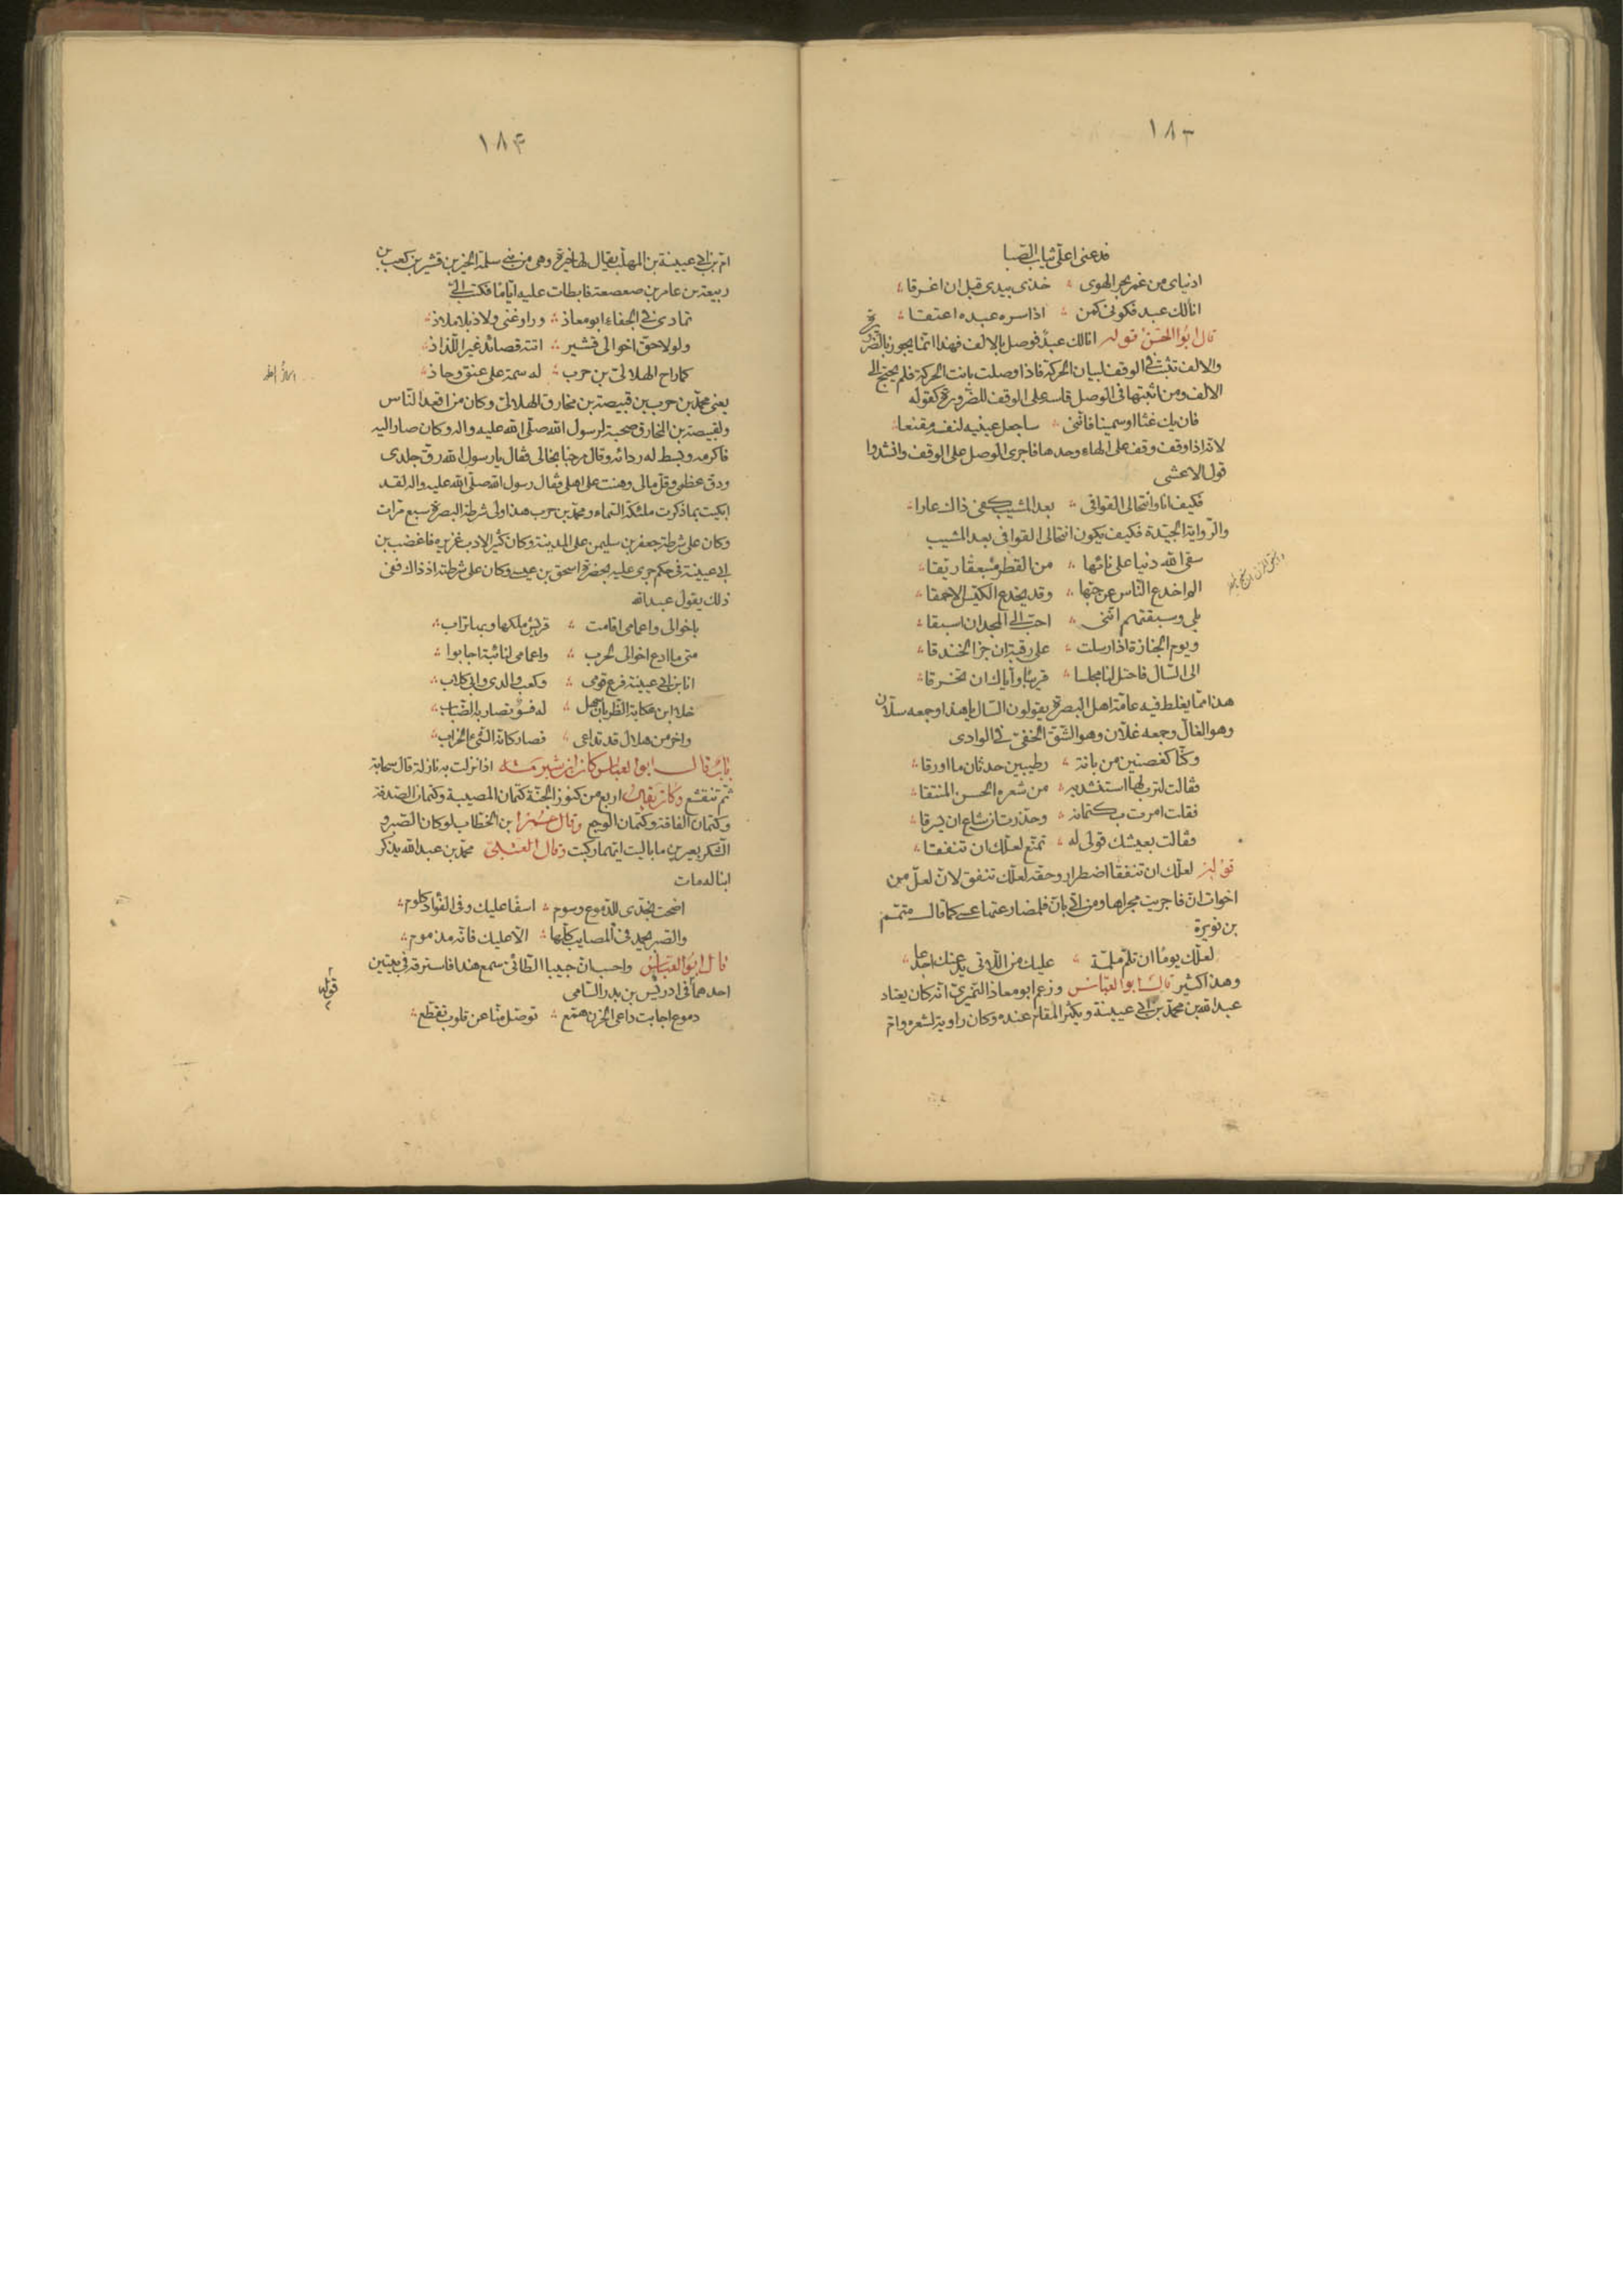 ١٨٣
فدعنى اغلى ثياب الصبا
ادنياى من غمر بحر الهوى ؞ خذى بيدى قبل ان اغرقا ؞
انا لك عبد فكونى كمن ؞ اذا سره عبده اعتقا ؞
قال ابو الحسن قوله انا لك عبد فوصل بالالف فهذا انما يجوز بالضرورة
والالف تثبت فى الوقف لبيان الحركة فاذا وصلت بانت الحركة فلم يحتج الى
الالف ومن اثبتها فى الوصل قاسه على الوقف للضرورة كقوله
فان يك غثا او سمينا فانّنى ؞ ساجعل عينيه لنفسه مقنعا ؞
لانه اذا وقف وقف على الهاء وحدها فاجرى الوصل على الوقف وانشدوا
قول الاعشى
فكيف انا وانتحالى القوافى ؞ بعد المشيب كفى ذاك عارا ؞
والرّواية الجيّدة فكيف يكون انتحالى القوافى بعد المشيب
سقى الله دنيا على نائها ؞ من القطر منبعقا ريقا ؞
الم اخدع النّاس عن حبّها ؞ وقد يخدع الكيّس الاحمقا ؞
بلى وسبقتهم انّنى ؞ احبّ الى المجد ان اسبقا ؞
ويوم الجنازة اذ ارسلت ؞ على رقبة ان جز الخندقا ؞
الى السّال فاختل لنا مجلسا ؞ قريبا وايّاك ان تخرقا ؞
هذا ممّا يغلط فيه عامّة اهل البصرة يقولون السّال يا هذا وجمعه سلّان
وهو الغالّ وجمعه غلّان وهو الشّقّ الخفىّ فى الوادى
وكنّا كغصنين من بانة ؞ رطيبين حدثان ما اورقا ؞
فقالت لترب لها استنشديه ؞ من شعره الحسن المنتقا ؞
فقلت امرت بكتمانه ؞ وحذّرت ان شاع ان يسرقا ؞
فقالت بعيشك قولى له ؞ تمتّع لعلّك ان تنفقا ؞
قوله لعلّك ان تنفقا اضطرار وحقه لعلّك تنفق لانّ لعلّ من
اخوات انّ فاجريت مجراها ومن اتى بان فلمضارعتها عسى كما قال متمّم
بن نويرة
لعلّك يوما ان تلمّ ملمّة ؞ عليك من اللّاتى يدعنك اجدعا ؞
وهذا كثير قال ابو العبّاس وزعم ابو معاذ النّميرىّ انّه كان يعتاد
عبد الله بن محمّد بن ابى عيينة ويكثر المقام عنده وكان راوية لشعره وامّ
١٨۴
امّ بن ابى عيينة بن المهلّب يقال لها خيرة وهى من بنى سلمة الخير بن قشير بن كعب بن
ربيعة بن عامر بن صعصعة فابطات عليه ايّاما فكتب الىّ
تمادى فى الجفاء ابو معاذ ؞ وراوغنى ولاذ بلا ملاذ ؞
ولولا حقّ اخوالى قشير ؞ اتته قصائد غير اللّذاذ ؞
كما راح الهلالىّ بن حرب ؞ له سمة على عنق وحاذ ؞
يعنى محمّد بن حرب بن قبيصة بن مخارق الهلالىّ وكان من اقعد النّاس
ولقبيصة بن المخارق صحبة لرسول الله صلّى الله عليه واله وكان صار اليه
فاكرمه وبسط له ردائه وقال مرحبا بخالى فقال يا رسول الله رقّ جلدى
ودقّ عظمى وقلّ مالى وهنت على اهلى فقال رسول الله صلّى الله عليه واله لقد
ابكيت بما ذكرت ملئكة السّماء ومحمّد بن حرب هذا ولى شرطة البصرة سبع مرّات
وكان على شرطة جعفر بن سليمن على المدينة وكان كثير الادب غزيره فاغضب بن
ابى عيينة فى حكم جرى عليه بحضرة اسحق بن عيسى وكان على شرطته اذ ذاك ففى
ذلك يقول عبد الله
باخوالى واعمامى اقامت ؞ قريش ملكها وبها تراب ؞
متى ما ادع اخوالى لحرب ؞ واعمامى لنائبة اجابوا ؞
انا بن ابى عيينة فرع قومى ؞ وكعب والدى وابى كلاب ؞
خلا ابن عكابة الظّربان سهل ؞ له فسو تصاد به الضّباب ؞
واخر من هلال قد تداعى ؞ فصار كانّه الشّىء الخراب ؞
باب قال ابو العبّاس كان ابن شبرمة اذا نزلت به نازلة قال سحابة
ثمّ تنقشع وكان يقال اربع من كنوز الجنّة كتمان المصيبة وكتمان الصّدقة
وكتمان الفاقة وكتمان الوجع وقال عمر بن الخطاب لو كان الصّبر و
الشّكر بعيرين ما باليت ايّهما ركبت وقال العتبىّ محمّد بن عبد الله يذكر
ابنا له مات
اضحت بخدّى للدّموع رسوم ؞ اسفا عليك وفى الفؤاد كلوم ؞
والصّبر يحمد فى المصايب كلّها ؞ الّا عليك فانّه مذموم ؞
قال ابو العبّاس واحسب انّ حبيبا الطّائىّ سمع هذا فاسترقه فى بيتين
احدهما فى ادريس بن بدر السّامى
دموع اجابت داعى الحزن همّع ؞ توصّل منّا عن قلوب تقطّع ؞
قوله